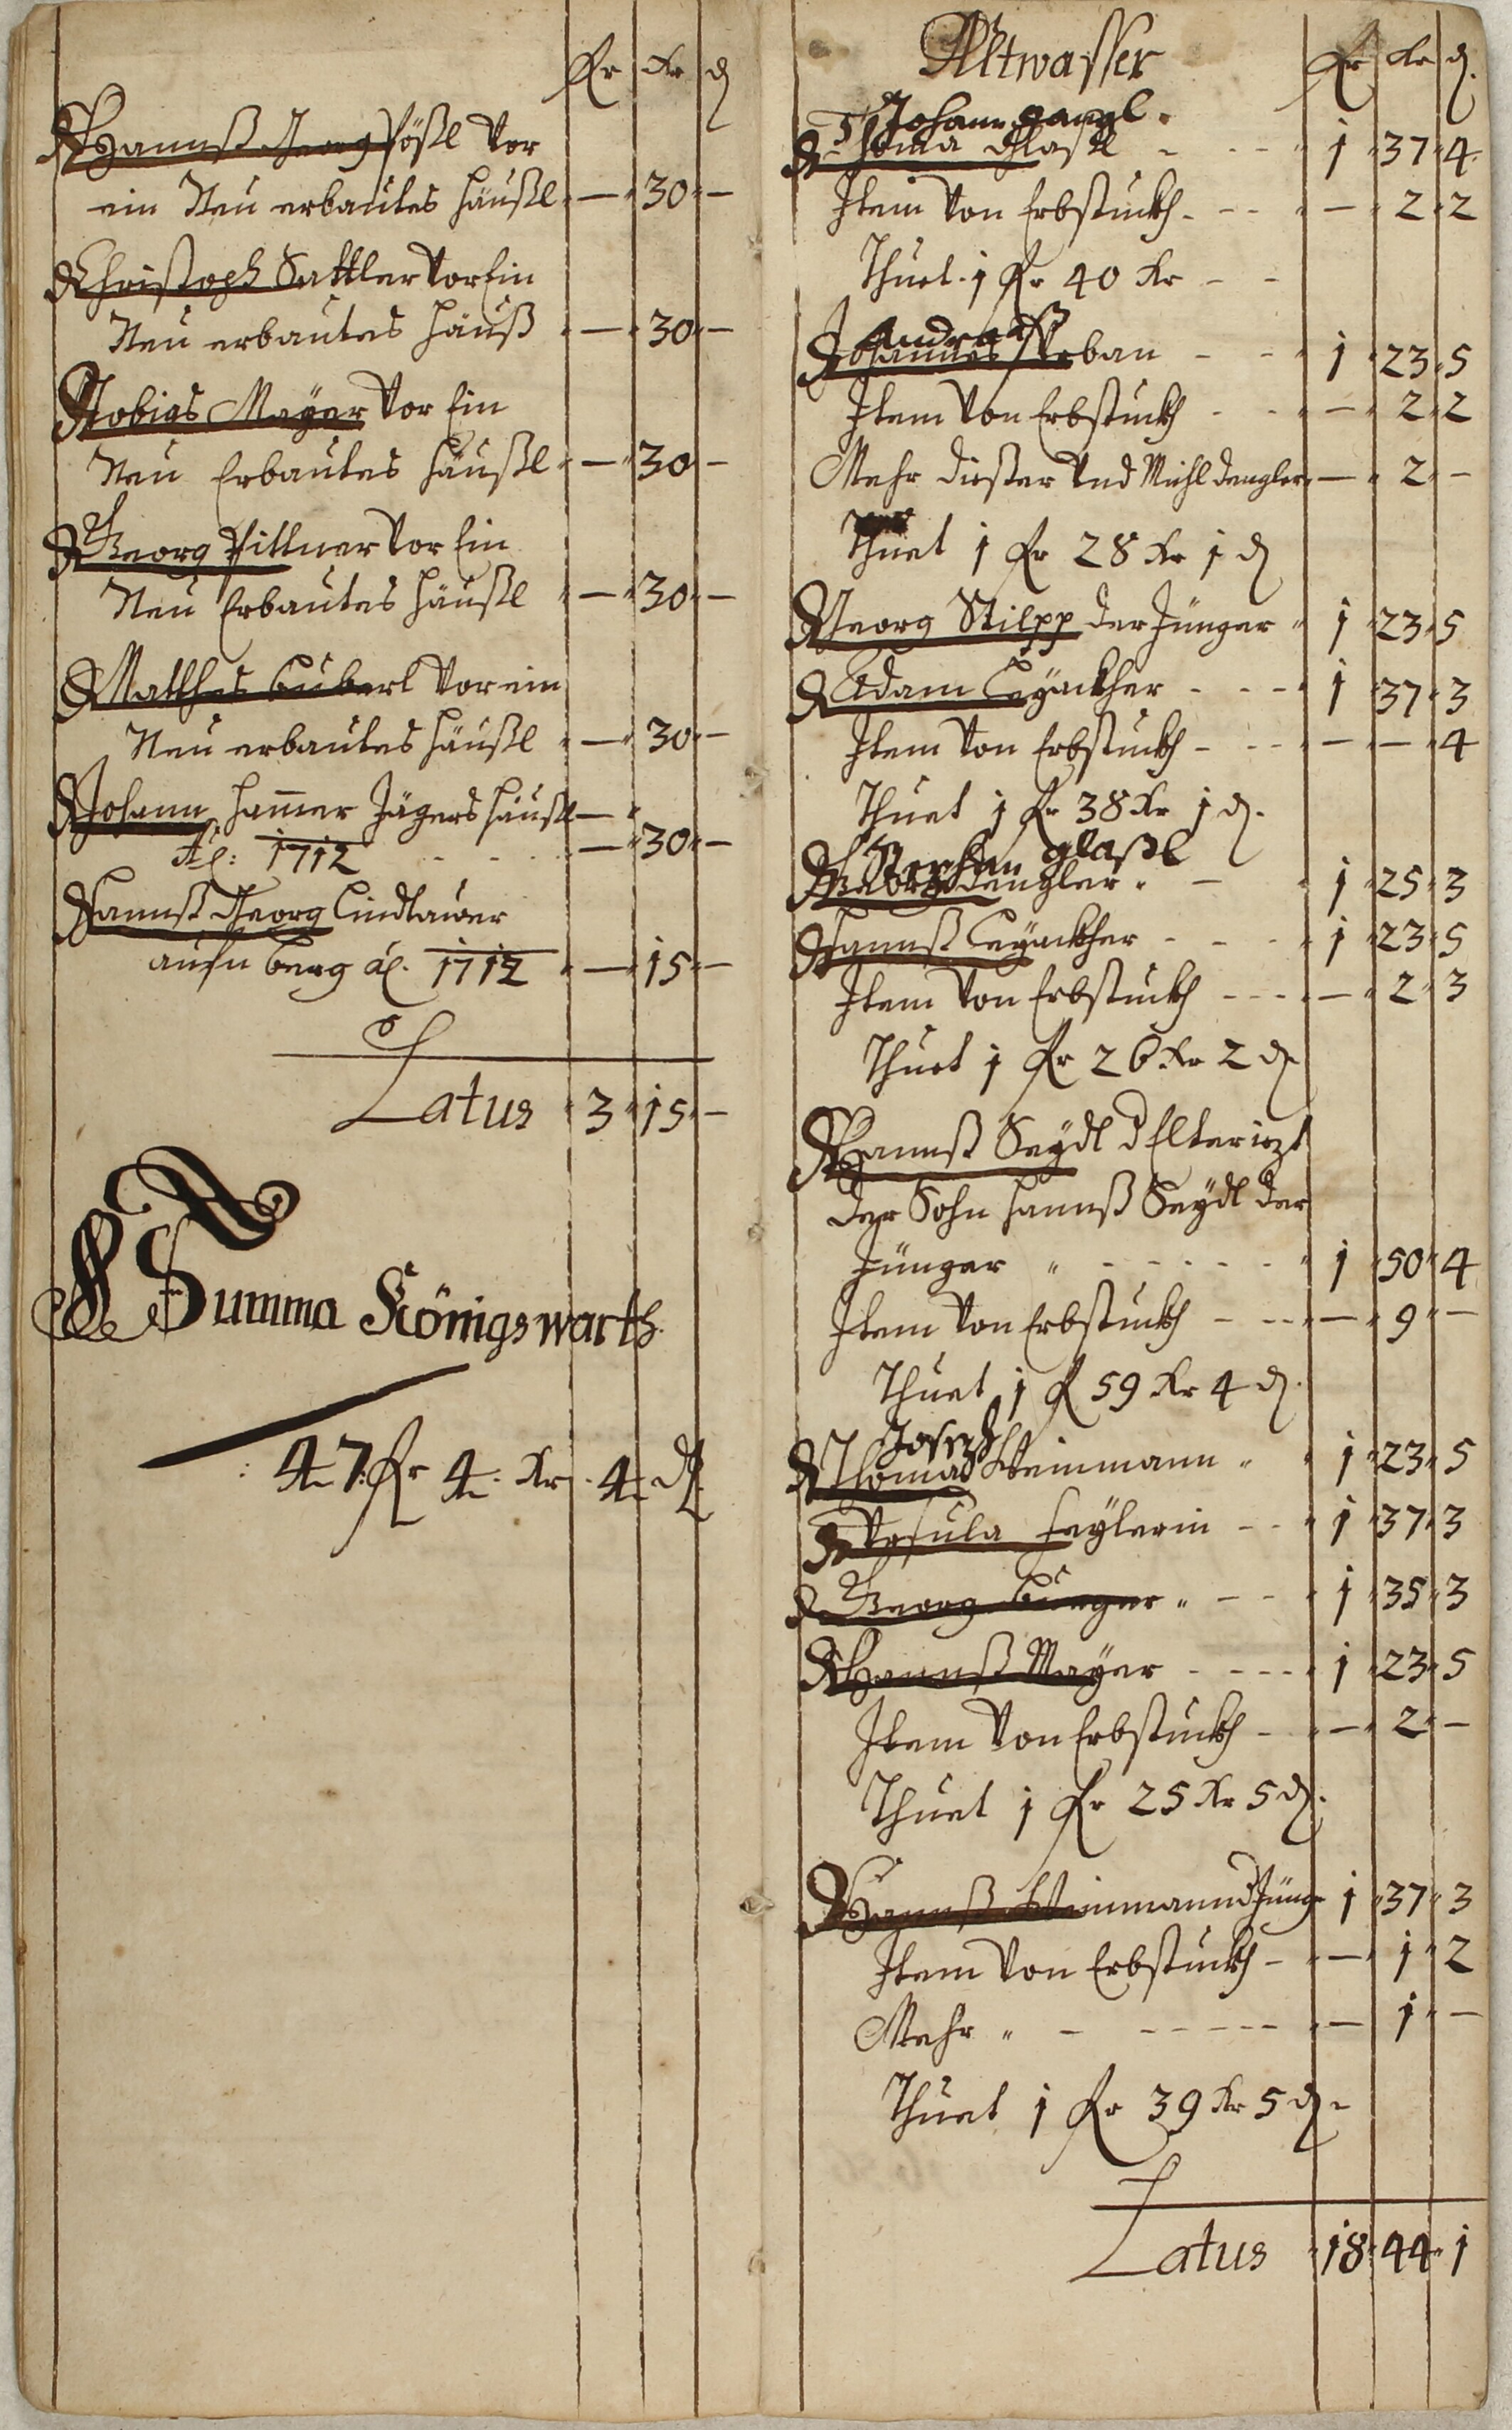 fr kr d
Hannß Georg Pößl vor
ein Neu erbautes Häußl — 30 —
Christoph Sattler vor Ein
Neu erbautes Häuß — 30 —
Tobias Mayer vor Ein
Neu Erbautes Häußl — 30 —
Georg Pillner vor Ein
Neu Erbautes Häußl — 30 —
Matthes Buberl vor ein
Neu erbautes Häußl — 30 —
Johann Hammer Jägers Häußl —
1712 — 30 —
Hannß Georg Lindtauer
aufn berg 1712 — 15 —
Latus 3 15 —
Summa Königswarth
47 fr 4 kr 4 d
Altwasser fr kr d
Johann gangl
Thoma Glaßl 1 37 4
Item von Erbstuckh — 2 2
Thuet 1 fr 40 kr
Andreas
Johannes Urban 1 23 5
Item von Erbstuckh — 2 2
Mehr dießer vnd Michl Dengler — 2 —
Thuet 1 fr 28 kr 1 d
Georg Stilpp der Jünger 1 23 5
Adam Leyackher 1 37 3
Item von Erbstuckh — — 4
Thuet 1 fr 38 kr 1 d
Stephan glaßl
Georg Dengler 1 25 3
Hannß Leyackher 1 23 5
Item von Erbstuckh — 2 3
Thuet 1 fr 26 kr 2 d
Hannß Seydl d Elter iezt
der Sohn Hannß Seydl der
Jünger 1 50 4
Item von Erbstuckh — 9 —
Thuet 1 f 59 kr 4 d
Joseph
Thomas Steinmann 1 23 5
Vrsula Feylerin 1 37 3
Georg Burger 1 35 3
Hannß Mayer 1 23 5
Item von Erbstuckh — 2 —
Thuet 1 fr 25 kr 5 d
Hannß Steinmann d Jüng 1 37 3
Item von Erbstuckh — 1 2
Mehr — 1 —
Thuet 1 fr 39 kr 5 d
Latus 18 44 1